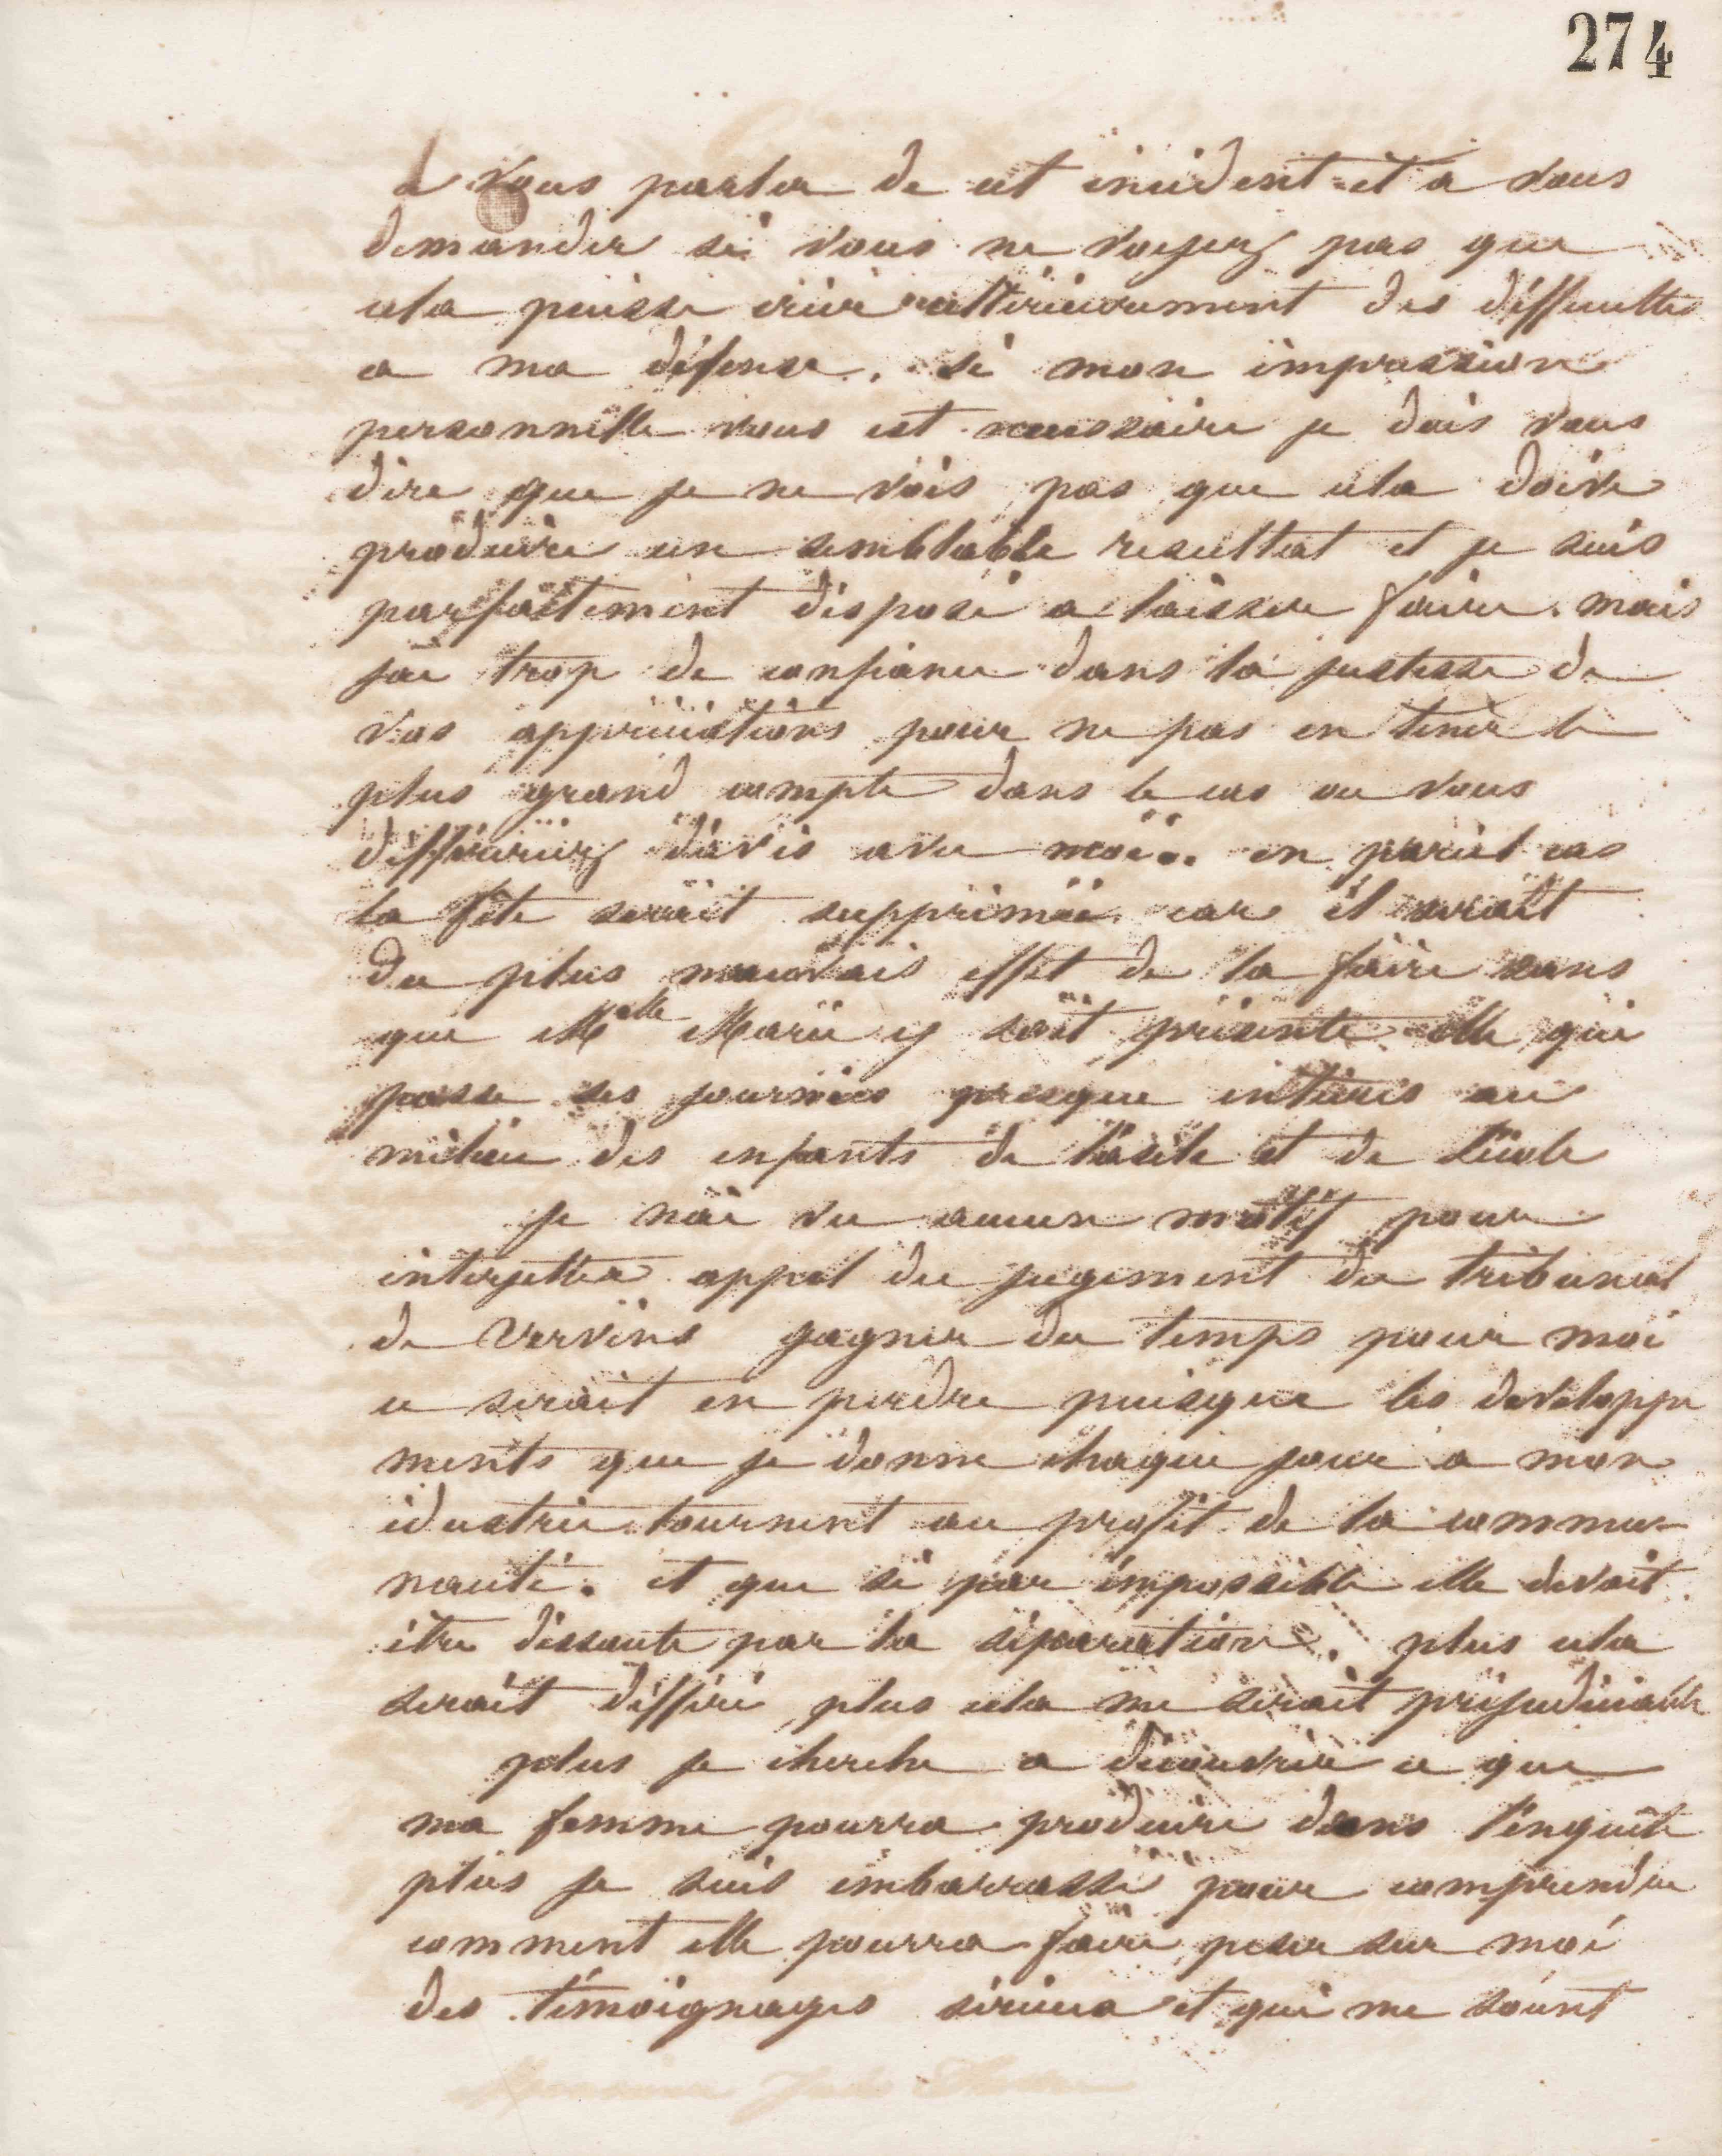 274
à vous parler de cet incident et a vous
demander si vous ne voyez pas que
cela puisse créer ultérieurement des difficultés
a ma défense. si mon impression
personnelle vous est necessaire je dois vous
dire que je ne vois pas que cela doive
produire un semblable resultat et je suis
parfaitement disposé a laisser faire. mais
jai trop de confiance dans la justesse de
vos appréciations pour ne pas en tenir le
plus grand compte dans le cas ou vous
differeriez d'avis avec moi. en pareil cas
la fête serait supprimée car il serait
du plus mauvais effet de la faire sans
que Melle Marie y soit présente elle qui
passe ses journées presque entieres au
milieu des enfants de l'asile et de l'école
je n'ai vu aucun motif pour
interjetter appel du jugement du tribunal
de Vervins gagner du temps pour moi
ce serait en perdre puisque les developpe
ments que je donne chaque jour a mon
idustrie tournent au profit de la commu-
nauté. et que si par impossible elle devait
être dissoute par la séparation. plus cela
serait différé plus cela me serait préjudiciable
plus je cherche a découvrir ce que
ma femme pourra produire dans l'enquête
plus je suis embarrassé pour comprendre
comment elle pourra faire peser sur moi
des témoignages sérieux et qui me soient